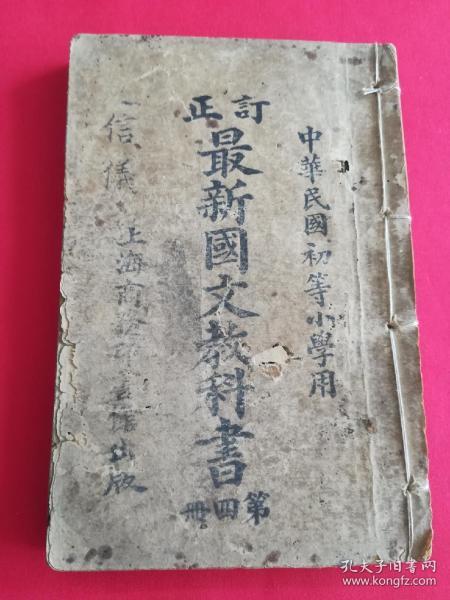 中華民國初等小學用
訂正
最新國文教科書
第四冊
上海商務印書館出版
信儀
孔夫子旧书网
www.kongfz.com